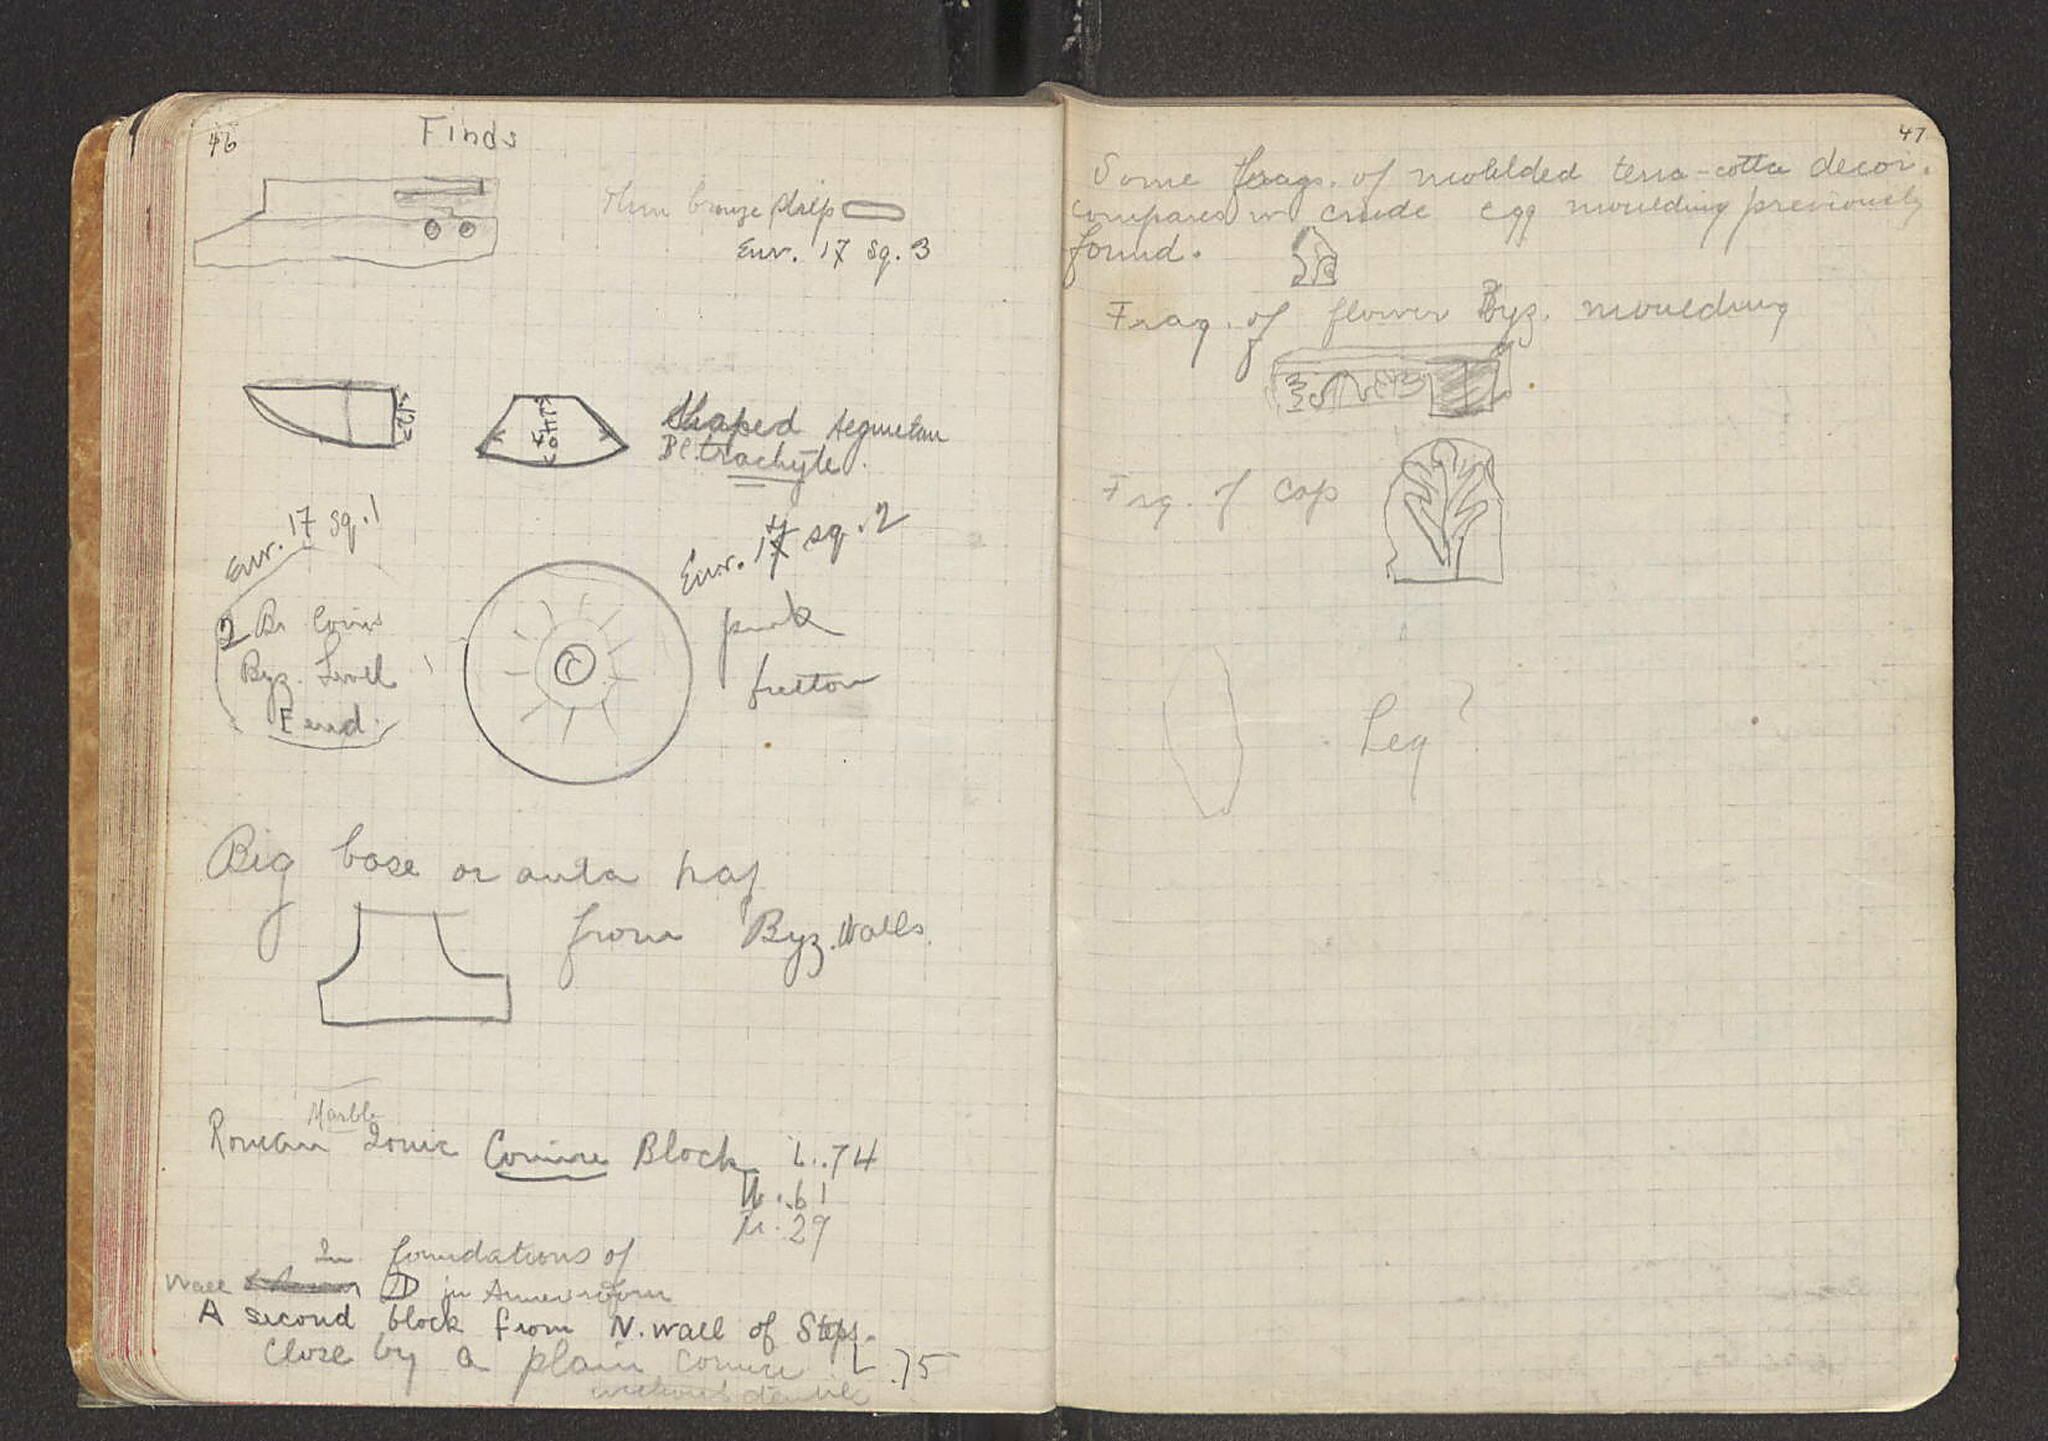 46
Finds
Thin bronze
Env. 17 sq. 3
Shaped
Bl. trachyte.
Env. 17 sq. 1
2 Br Coins
Byz. Level
Env. 17 sq. 2
Big base or anta
from Byz. Walls.
Marble
Roman Ionic Cornice Block L. .74
W. .61
H. .29
In foundations of
Wall D in
A second block from N. wall of Steps.
close by a plain cornice L .75
without dentil
47
Some frags. of molded terra-cotta decor.
compares w crude egg moulding previously
found.
Frag. of flower Byz. moulding
Frg. of cap
Leg?